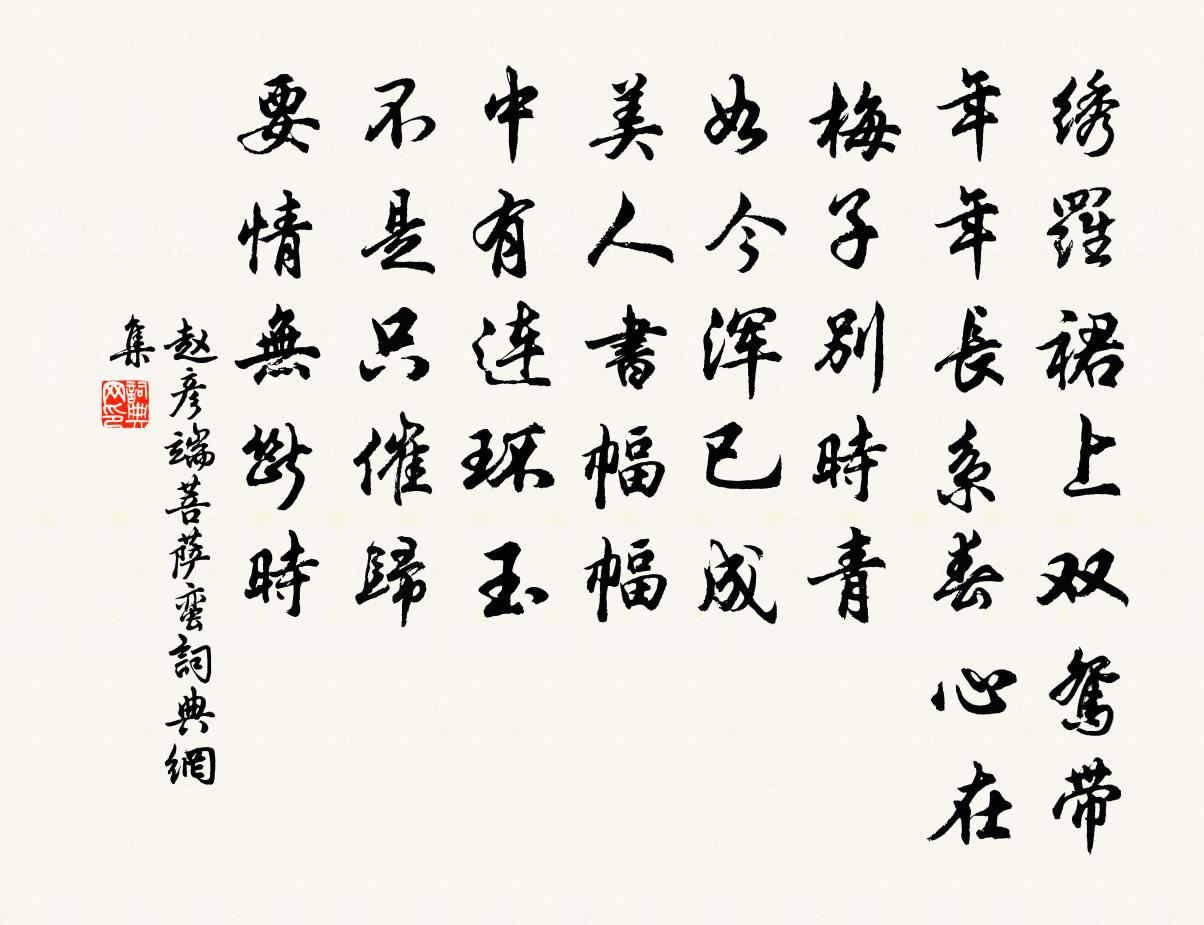 绣羅裙上双鸳带
年年長系春心在
梅子别時青
如今浑已成
美人書幅幅
中有连环玉
不是只催歸
要情無断時
赵彦端菩萨蛮詞典網
集
詞典网印